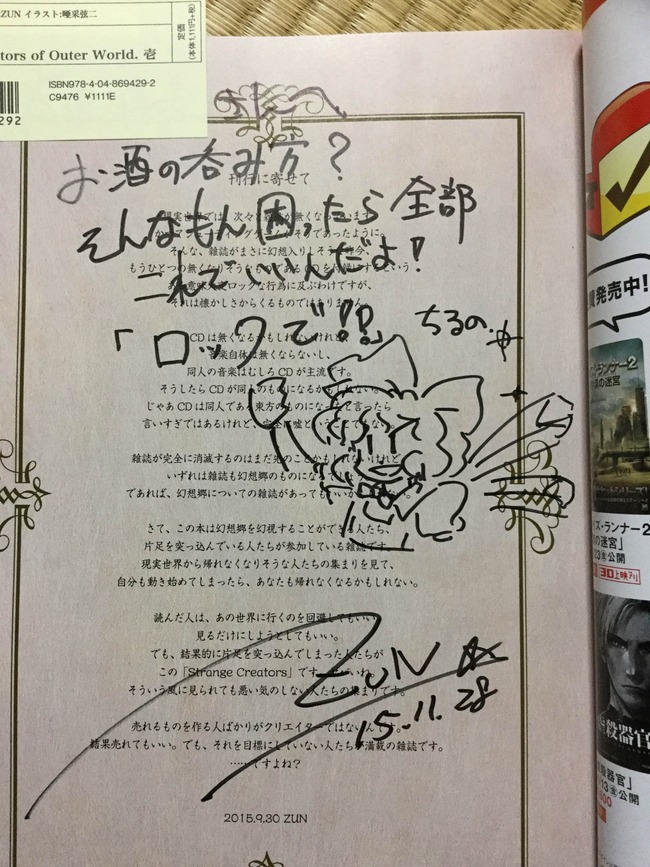 ZUN イラスト:唖采弦二
tors of Outer World. 壱
定価
(本体1,111円+税)
ISBN978-4-04-869429-2
C9476 ¥1111E
292
お酒の呑み方?
刊行に寄せて
そんなもん困ったら全部
これでいいんだよ!
「ロックで!?」
ちるの
もうひとつの無くなりそうなものであるCDを付録にするという
それは懐かしさからくるものではありません。
CDは無くなるかもしれないけれど、
音楽自体は無くならないし、
同人の音楽はむしろCDが主流です。
そうしたらCDが同人のものになるかもしれない。
じゃあCDは同人である東方のものになったと言ったら
言いすぎではあるけれど、完全に嘘ということでもない。
雑誌が完全に消滅するのはまだ先のことかもしれないけれど
いずれは雑誌も幻想郷のものになるでしょう
であれば、幻想郷についての雑誌があってもいいかもしれない。
さて、この本は幻想郷を幻視することができる人たち、
片足を突っ込んでいる人たちが参加している雑誌です
現実世界から帰れなくなりそうな人たちの集まりを見て、
自分も動き始めてしまったら、あなたも帰れなくなるかもしれない。
読んだ人は、あの世界に行くのを回避してもいい
見るだけにしようとしてもいい。
でも、結果的に片足を突っ込んでしまった人たちが
この「Strange Creators」です
そういう風に見られても悪い気のしない人たちの集まりです。
ZUN
15.11.28
売れるものを作る人ばかりがクリエイターではないんです。
結果売れてもいい。でも、それを目標にしていない人たち満載の雑誌です。
……ですよね?
2015.9.30 ZUN
発売中!
ランナー2
の迷宮
ズ・ランナー2
の迷宮」
23㊎公開
3D上映アリ
殺器官
殺器官」
13㊎公開